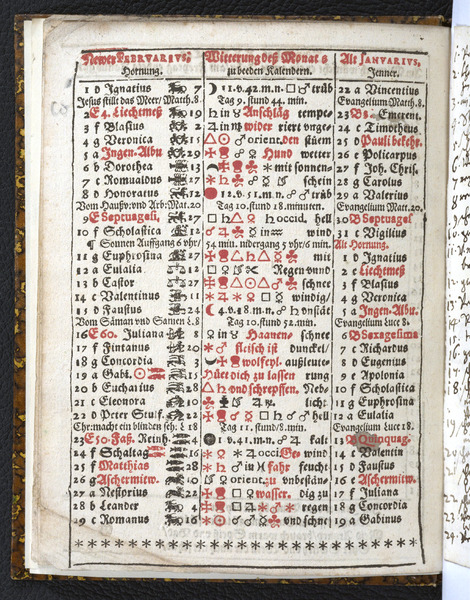 Newer FEBRVARIVS, Witterung deß Monats Alt IANVARIVS,
Hornung. zu beeden Kalendern. Jenner.
1 d Ignatius 7 11.v.42.m.n. trüb 22 a Vincentius
Jesus stillt das Meer/Matth.8. Tag 9. stund 44. min. Evangelium Matth.8.
2 E4. Liechtmeß 19 in Anschläg tempe- 23 B3. Emerent.
3 f Blasius 2 in wider riert unge- 24 c Timotheus
4 g Veronica 15 orient. den stüem 25 d Pauli bekehr.
5 a Ingen-Albu 29 Hund wetter 26 e Policarpus
6 b Dorothea 13 mit sonnen- 27 f Joh. Chris.
7 c Romualdus 27 schein 28 g Carolus
8 d Honoratus 12 12.v.51.m.n. trüb 29 a Valerius
Vom Haußv. und Arb: Mat. 20 Tag 10. stund 18. minuten. Evangelium Matt. 20.
9 E Septuagesi. 27 occid. hell 30 B Septuages
10 f Scholastica 12 in wind 31 c Vigilius
¶ Sonnen Auffgang 6 vhr/ 54 min. nidergang 5 vhr/6 min. Alt Hornung.
11 g Euphrosina 27 mit 1 d Ignatius
12 a Eulalia 12 Regen vnnd 2 e Liechtmeß
13 b Castor 27 schnee 3 f Blasius
14 c Valentinus 11 windig/ 4 g Veronica
15 d Faustus 24 4.v.18.m.n. vnstät 5 a Ingen-Albu.
Vom Säman und Samen L.8 Tag 10. stund 52. min. Evangelium Luce 8.
16 E60. Juliana 8 in Haanen- schnee 6 B Sexagesima
17 f Fintanus 21 fleisch ist dunckel/ 7 c Richardus
18 g Concordia 3 wolfeyl. außleute- 8 d Eugenius
19 a Gabi. 15 Hüet dich zu lassen rung 9 e Apolonia
20 b Eucharius 28 vnd schrepffen. Neb- 10 f Scholastica
21 c Eleonora 10 licht: 11 g Euphrosina
22 d Peter Stulf. 22 hell 12 a Eulalia
Chr: macht ein blinden seh: L 18 Tag 11. stund/8. min. Evangelium Luce 18.
23 E50. Faß. Reinh. 4 1.v.41.m.n. kalt 13 B Quinquag.
24 f Schaltag 16 occi Ge- wind 14 c Valentin
25 f Matthias 28 in fahr feucht 15 d Faustus
26 g Aschermitw. 10 orient. zu vnbestän- 16 e Aschermitw.
27 a Nestorius 22 wasser. dig zu 17 f Juliana
28 b Leander 4 regen 18 g Concordia
29 c Romanus 16 vnd schne 19 a Gabinus